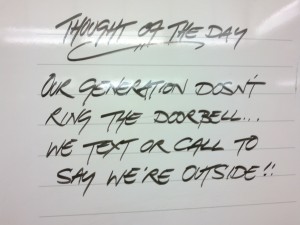 THOUGHT OF THE DAY
OUR GENERATION DOSN'T
RING THE DOORBELL...
WE TEXT OR CALL TO
SAY WE'RE OUTSIDE!!